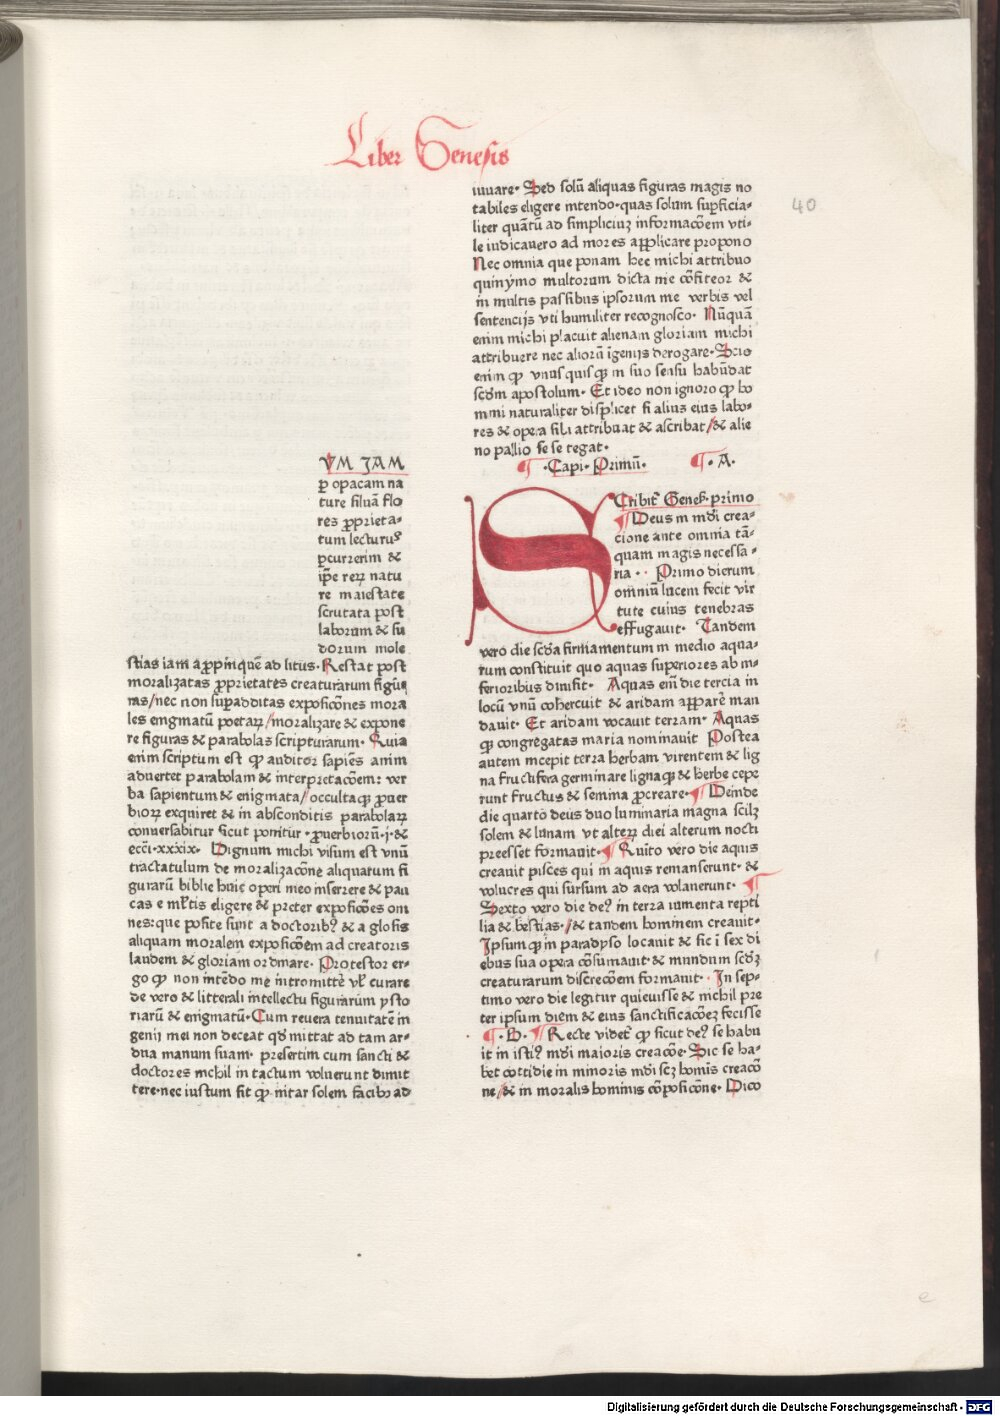 Liber Genesis
40
VM JAM
ꝑ opacam na
ture siluā flo
res ꝓprieta-
tum lecturꝰ
ꝑcurrerim &
ip̄e reꝝ natu
re maiestate
scrutata post
laborum & su
dorum mole
stias iam aꝓpinquē ad litus. Restat post
moralizatas ꝓprietates creaturarum figu
ras/nec non suꝑadditas exposicōnes mora
les enigmatū poetaꝝ/moralizare & expone
re figuras & parabolas scripturarum. Quia
enim scriptum est ꝙ auditor sapiēs anim
aduertet parabolam & interpretacōem: ver
ba sapientum & enigmata/occultaqꝫ ꝓuer
bioꝝ exquiret & in absconditis parabolaꝝ
conuersabitur sicut ponitur. ꝓuerbiorū.j.&
ecc̄i.xxxix. Dignum michi visum est vnū
tractatulum de moralizacōne aliquarum fi
gurarū biblie huic operi meo inserere & pau
cas e ml̄tis eligere & preter exposicōes om
nes: que posite sunt a doctoribꝰ & a glosis
aliquam moralem exposicōem ad creatoris
laudem & gloriam ordinare. Protestor er-
go ꝙ non intēdo me intromittē vl̄ curare
de vero & litterali intellectu figurarum ysto
riarū & enigmatū. Cum reuera tenuitatē in
genij mei non deceat qd̄ mittat ad tam ar-
dua manum suam. presertim cum sancti &
doctores nichil in tactum voluerunt dimit
tere. nec iustum sit ꝙ instar solem facibꝰ ad
iuuare. Sed solū aliquas figuras magis no
tabiles eligere intendo. quas solum suꝑficia-
liter quātū ad simpliciuꝫ informacōem vti-
le iudicauero ad mores aꝓplicare propono
Nec omnia que ponam hec michi attribuo
quinymo multorum dicta me cōfiteor &
in multis passibus ipsorum me verbis vel
sentencijs vti humiliter recognosco. Nūquā
enim michi placuit alienam gloriam michi
attribuere nec aliorū īgenijs derogare. Scio
enim ꝙ vnusquisqꝫ in suo sensu habūdat
scdm̄ apostolum. Et ideo non ignoro ꝙ ho
mini naturaliter displicet si alius eius labo-
res & opera sibi attribuat & ascribat/& alie
no pallio se se tegat.
¶ .Capi. Primū. ¶ . A.
SCribit̄ Genes̄. primo
¶ Deus in mūdi crea-
cione ante omnia tā-
quam magis necessa-
ria.. Primo dierum
omniū lucem fecit vir
tute cuius tenebras
effugauit. Tandem
vero die scd̄a firmamentum in medio aqua-
rum constituit quo aquas superiores ab in-
ferioribus diuisit. Aquas em̄ die tercia in
locū vnū cohercuit & aridam apparē man
dauit. Et aridam vocauit terram. Aquas
qꝫ congregatas maria nominauit Postea
autem incepit terra herbam virentem & lig
na fructifera germinare lignaqꝫ & herbe cepe
runt fructus & semina ꝓcreare. ¶ Deinde
die quarto deus duo luminaria magna scilꝫ
solem & lunam vt alteꝝ diei alterum nocti
preesset formauit. ¶ Quīto vero die aquis
creauit pisces qui in aquis remanserunt. &
volucres qui sursum ad aera volauerunt. ¶
Sexto vero die deꝰ in terra iumenta repti
lia & bestias./& tandem hominem creauit.
Ipsumqꝫ in paradyso locauit & sic ī sex di
ebus sua opera cōsumauit. & mundum scdꝫ
creaturarum discrecōem formauit. In sep-
timo vero die legitur quieuisse & nichil pre
ter ipsum diem & eius sanctificacōeꝫ fecisse
¶ . B. ¶ Recte videt̄ ꝙ sicut deꝰ se habu
it in istiꝰ mūdi maioris creacōe. Sic se ha-
bet cottidie in minoris mūdi scꝫ homīs creacō
ne/& in moralis hominis cōposicōne. Dico
e
Digitalisierung gefördert durch die Deutsche Forschungsgemeinschaft - DFG